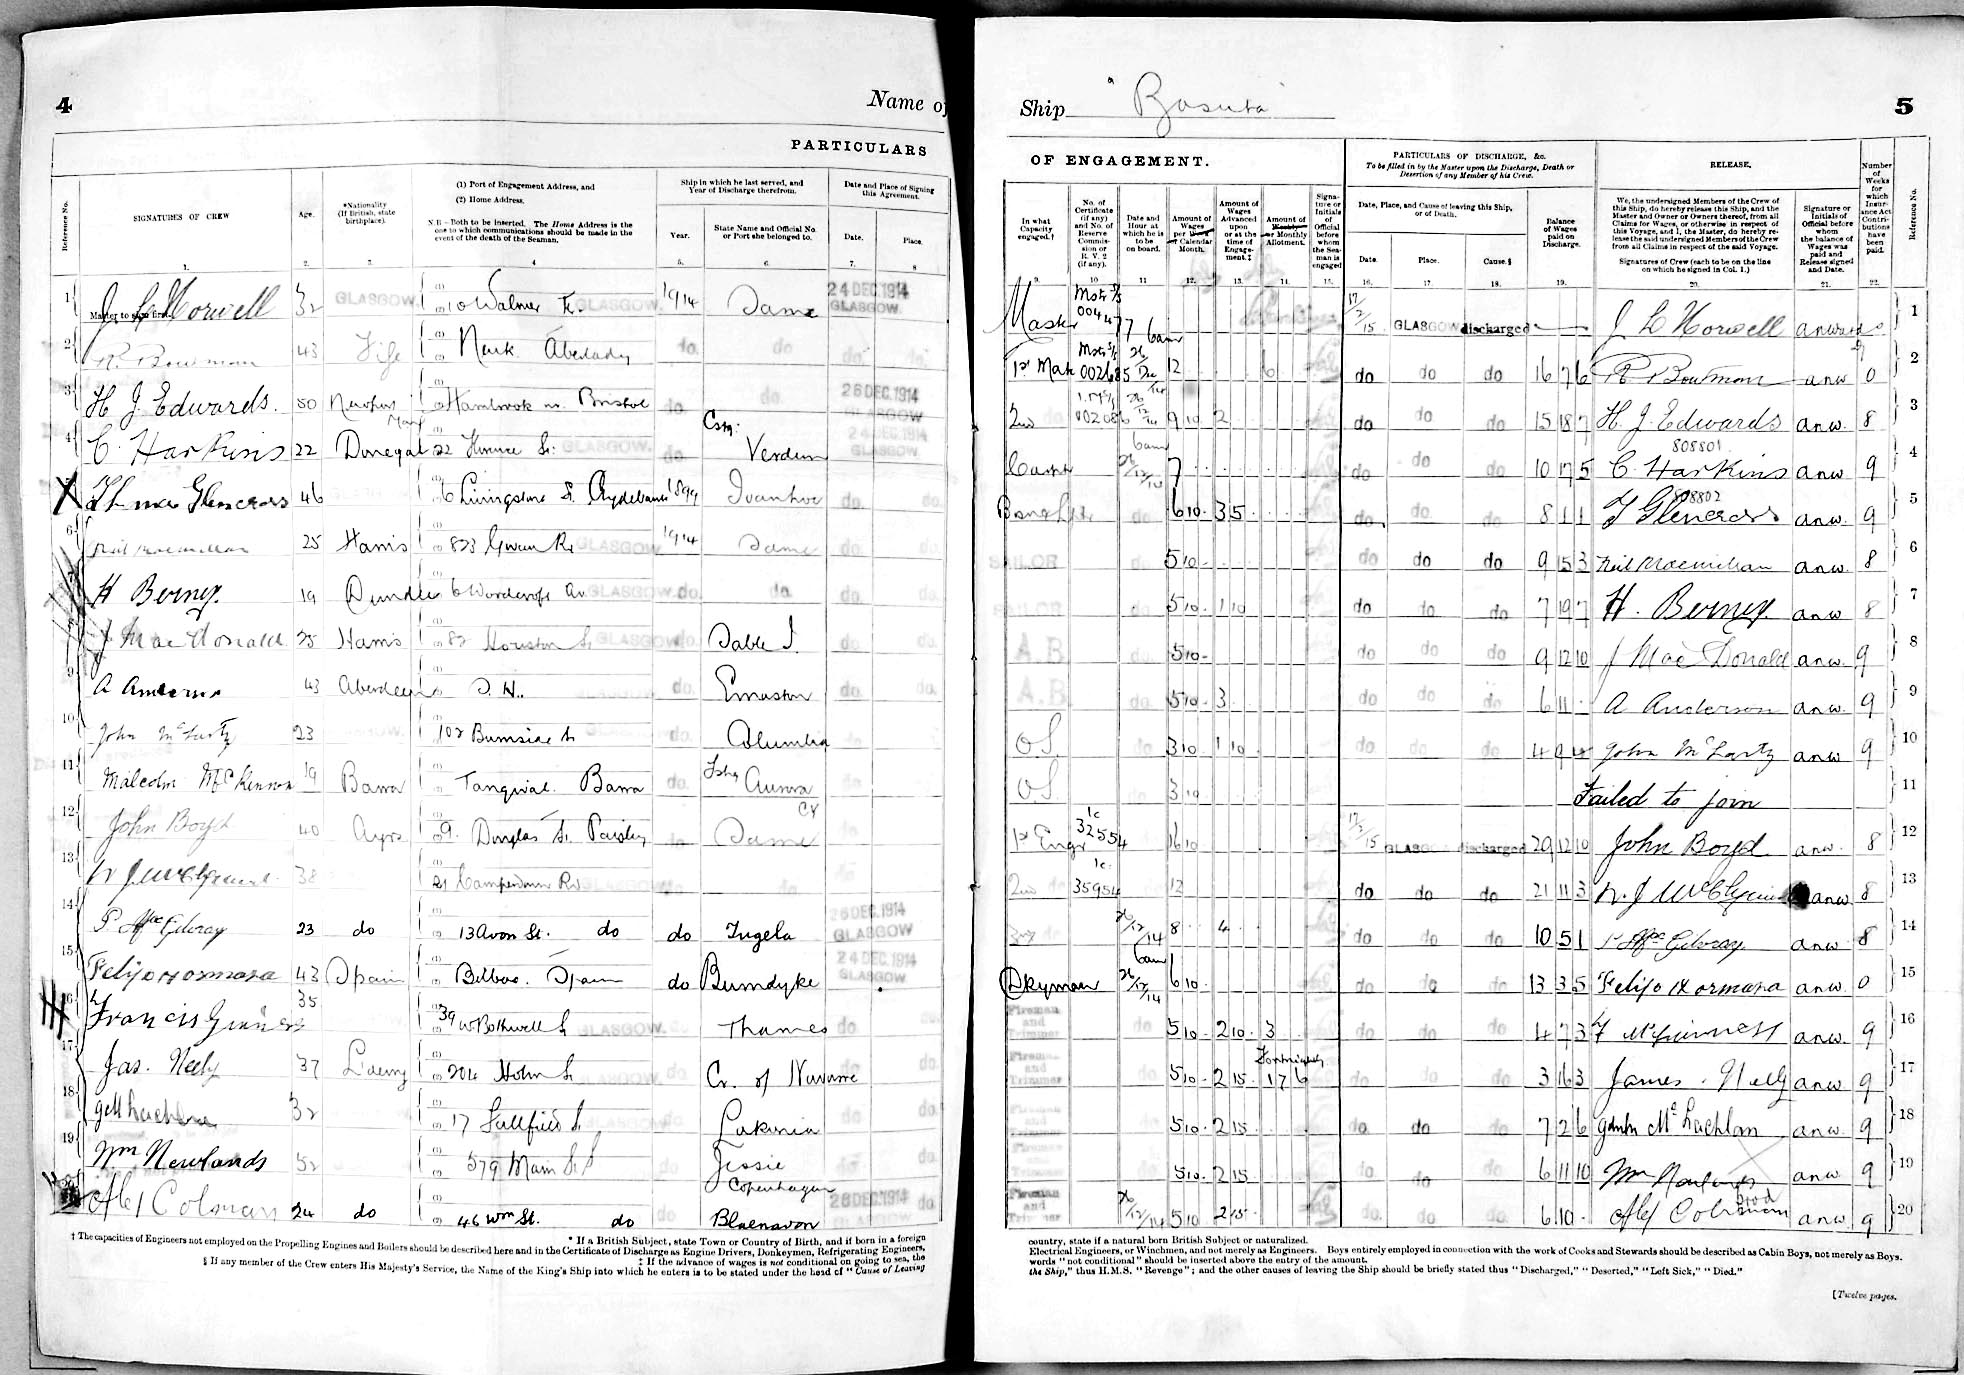 4
Name of
PARTICULARS
Reference No.
SIGNATURES OF CREW
Age.
*Nationality
(If British, state
birthplace).
(1) Port of Engagement Address, and
(2) Home Address.
N.B.—Both to be inserted. The Home Address is the
one to which communications should be made in the
event of the death of the Seaman.
Ship in which he last served, and
Year of Discharge therefrom.
Year.
State Name and Official No.
or Port she belonged to.
Date and Place of Signing
this Agreement.
Date.
Place.
1. 2. 3. 4 5. 6. 7. 8
1 Master to sign first 32 GLASGOW. GLASGOW. 1914 Same 24 DEC. 1914 GLASGOW.
2 R. Bowman 43 Fife Aberlady do do do
3 H J. Edwards. 50 Hambrook nr. Bristol do do 26 DEC. 1914 GLASGOW
4 C. Harkins 22 Donegal 22 Florence St. GLASGOW. do Verdun 24 DEC. 1914 GLASGOW
5 Thomas Glencross 46 6 Livingstone St. Clydebank 1899 Ivanhoe do. do.
6 Neil Macmillan 25 Harris 823 Govan Rd GLASGOW 1914 Same do do.
7 H Berney. 19 Dundee 6 GLASGOW. do. do. do. do.
8 J MacDonald 25 Harris 82 Houston St GLASGOW. do. Sable I. do. do.
9 A Anderson 43 Aberdeen S. H. do. do. do.
10 John McLarty 23 102 Burnside St do. Columbia do
11 Malcolm McKinnon 19 Barra Tangival. Barra do. Aurora
12 John Boyd 40 Ayrs 9. Douglas St. Paisley do Same do
13 38 21 Camperdown Rd GLASGOW do do
14 P. McGilvray 23 do 13 Avon St. do do Tugela 26 DEC. 1914 GLASGOW
15 43 Spain Bilbao. Spain do Bumdyke 24 DEC. 1914 GLASGOW
16 35 39 W Bothwell St GLASGOW. do. Thames do do.
17 Jas. Neely 37 204 Holm St GLASGOW do Cr. of Navarre do do.
18 32 17 do do.
19 Wm Newlands 52 579 Main St do Jessie Copenhagen do do.
20 Alex Colman 24 do 46 Wm St. do do Blaenavon 26 DEC. 1914 GLASGOW do.
* If a British Subject, state Town or Country of Birth, and if born in a foreign
† The capacities of Engineers not employed on the Propelling Engines and Boilers should be described here and in the Certificate of Discharge as Engine Drivers, Donkeymen, Refrigerating Engineers,
‡ If the advance of wages is not conditional on going to sea, the
§ If any member of the Crew enters His Majesty's Service, the Name of the King's Ship into which he enters is to be stated under the head of "Cause of Leaving
Ship "Basuta"
5
OF ENGAGEMENT.
PARTICULARS OF DISCHARGE, &c.
To be filled in by the Master upon the Discharge, Death or
Desertion of any Member of his Crew.
RELEASE.
In what
Capacity
engaged.†
No. of
Certificate
(if any)
and No. of
Reserve
Commis-
sion or
R. V. 2
(if any).
Date and
Hour at
which he is
to be
on board.
Amount of
Wages
per Week
or Calendar
Month.
Amount of
Wages
Advanced
upon
or at the
time of
Engage-
ment.‡
Amount of
Weekly
or Monthly
Allotment.
Signa-
ture or
Initials
of
Official
before
whom
the Sea-
man is
engaged
Date, Place, and Cause of leaving this Ship,
or of Death.
Date.
Place.
Cause.§
Balance
of Wages
paid on
Discharge.
We, the undersigned Members of the Crew of
this Ship, do hereby release this Ship, and the
Master and Owner or Owners thereof, from all
Claims for Wages, or otherwise in respect of
this Voyage, and I, the Master, do hereby re-
lease the said undersigned Members of the Crew
from all Claims in respect of the said Voyage.
Signatures of Crew (each to be on the line
on which he signed in Col. 1.)
Signature or
Initials of
Official before
whom
the balance of
Wages was
paid and
Release signed
and Date.
Number
of
Weeks
for
which
Insur-
ance Act
Contri-
butions
have
been
paid.
Reference No.
9. 10 11 12 13. 14. 15. 16. 17. 18. 19. 20. 21. 22.
Master 6am 17/2/15 GLASGOW discharged 1
1st Mate 002685 12 6 do do do 16 7 6 R Bowman anw 0 2
2nd do 9 10 2 do do do 15 18 7 H. J. Edwards anw. 8 3
6am 7 do do do 10 17 5 808801 C. Harkins anw 9 4
do 6 10 3 5 do do do 8 1 1 808802 T Glencross anw. 9 5
SAILOR do 5 10 do do do 9 15 3 Neil Macmillan anw. 8 6
SAILOR do 5 10 1 10 do do do 7 19 7 H. Berney. anw 8 7
A.B. do 5 10 do do do 9 12 10 J MacDonald anw. 9 8
A.B. do 5 10 3 do do do 6 11 A Anderson anw. 9 9
O S. 3 10 1 10 do do do 4 9 4 John McLarty anw 9 10
O S 3 10 Failed to join 11
1st Engr 32554 16 10 17/2/15 GLASGOW discharged 29 12 10 John Boyd anw. 8 12
2nd do 35954 12 do do do 21 11 3 anw 8 13
3rd do 26/12/14 8 4 do do do 10 5 1 P McGilvray anw 8 14
Dkyman 6am 26/12/14 6 10 do do do 13 3 5 anw 0 15
Fireman and Trimmer do 5 10 2 10 3 do do do 4 7 3 F McGuinness anw. 9 16
Fireman and Trimmer do 5 10 2 15 Fortnightly 1 7 6 do do do 3 16 3 James Neely anw 9 17
Fireman and Trimmer do 5 10 2 15 do do do 7 2 6 McLachlan anw. 9 18
Fireman and Trimmer do 5 10 2 15 do do do 6 11 10 Wm Newlands anw 9 19
Fireman and Trimmer 26/12/14 5 10 2 15 do do do 6 10 Alex Colman anw. 9 20
country, state if a natural born British Subject or naturalized.
Electrical Engineers, or Winchmen, and not merely as Engineers. Boys entirely employed in connection with the work of Cooks and Stewards should be described as Cabin Boys, not merely as Boys.
words "not conditional" should be inserted above the entry of the amount.
the Ship," thus H.M.S. "Revenge"; and the other causes of leaving the Ship should be briefly stated thus "Discharged," "Deserted," "Left Sick," "Died."
[Twelve pages.